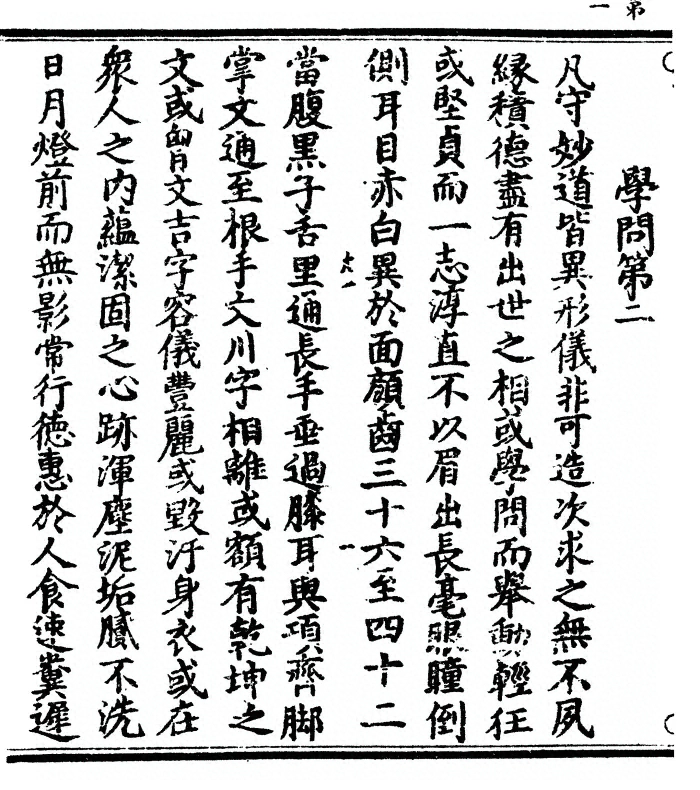 第一
學問第二
凡守妙道皆異形儀非可造次求之無不夙
緣積德盡有出世之相或學問而舉動輕狂
或堅貞而一志淳直不以眉出長毫眼瞳倒
側耳目赤白異於面顏齒三十六至四十二
當腹黑子舌里通長手垂過膝耳與項齊脚
掌文通至根手文川字相離或額有乾坤之
文或胷文吉字容儀豐麗或毀汙身衣或在
衆人之內蘊潔固之心跡渾塵泥垢膩不洗
日月燈前而無影常行德惠於人食速糞遲